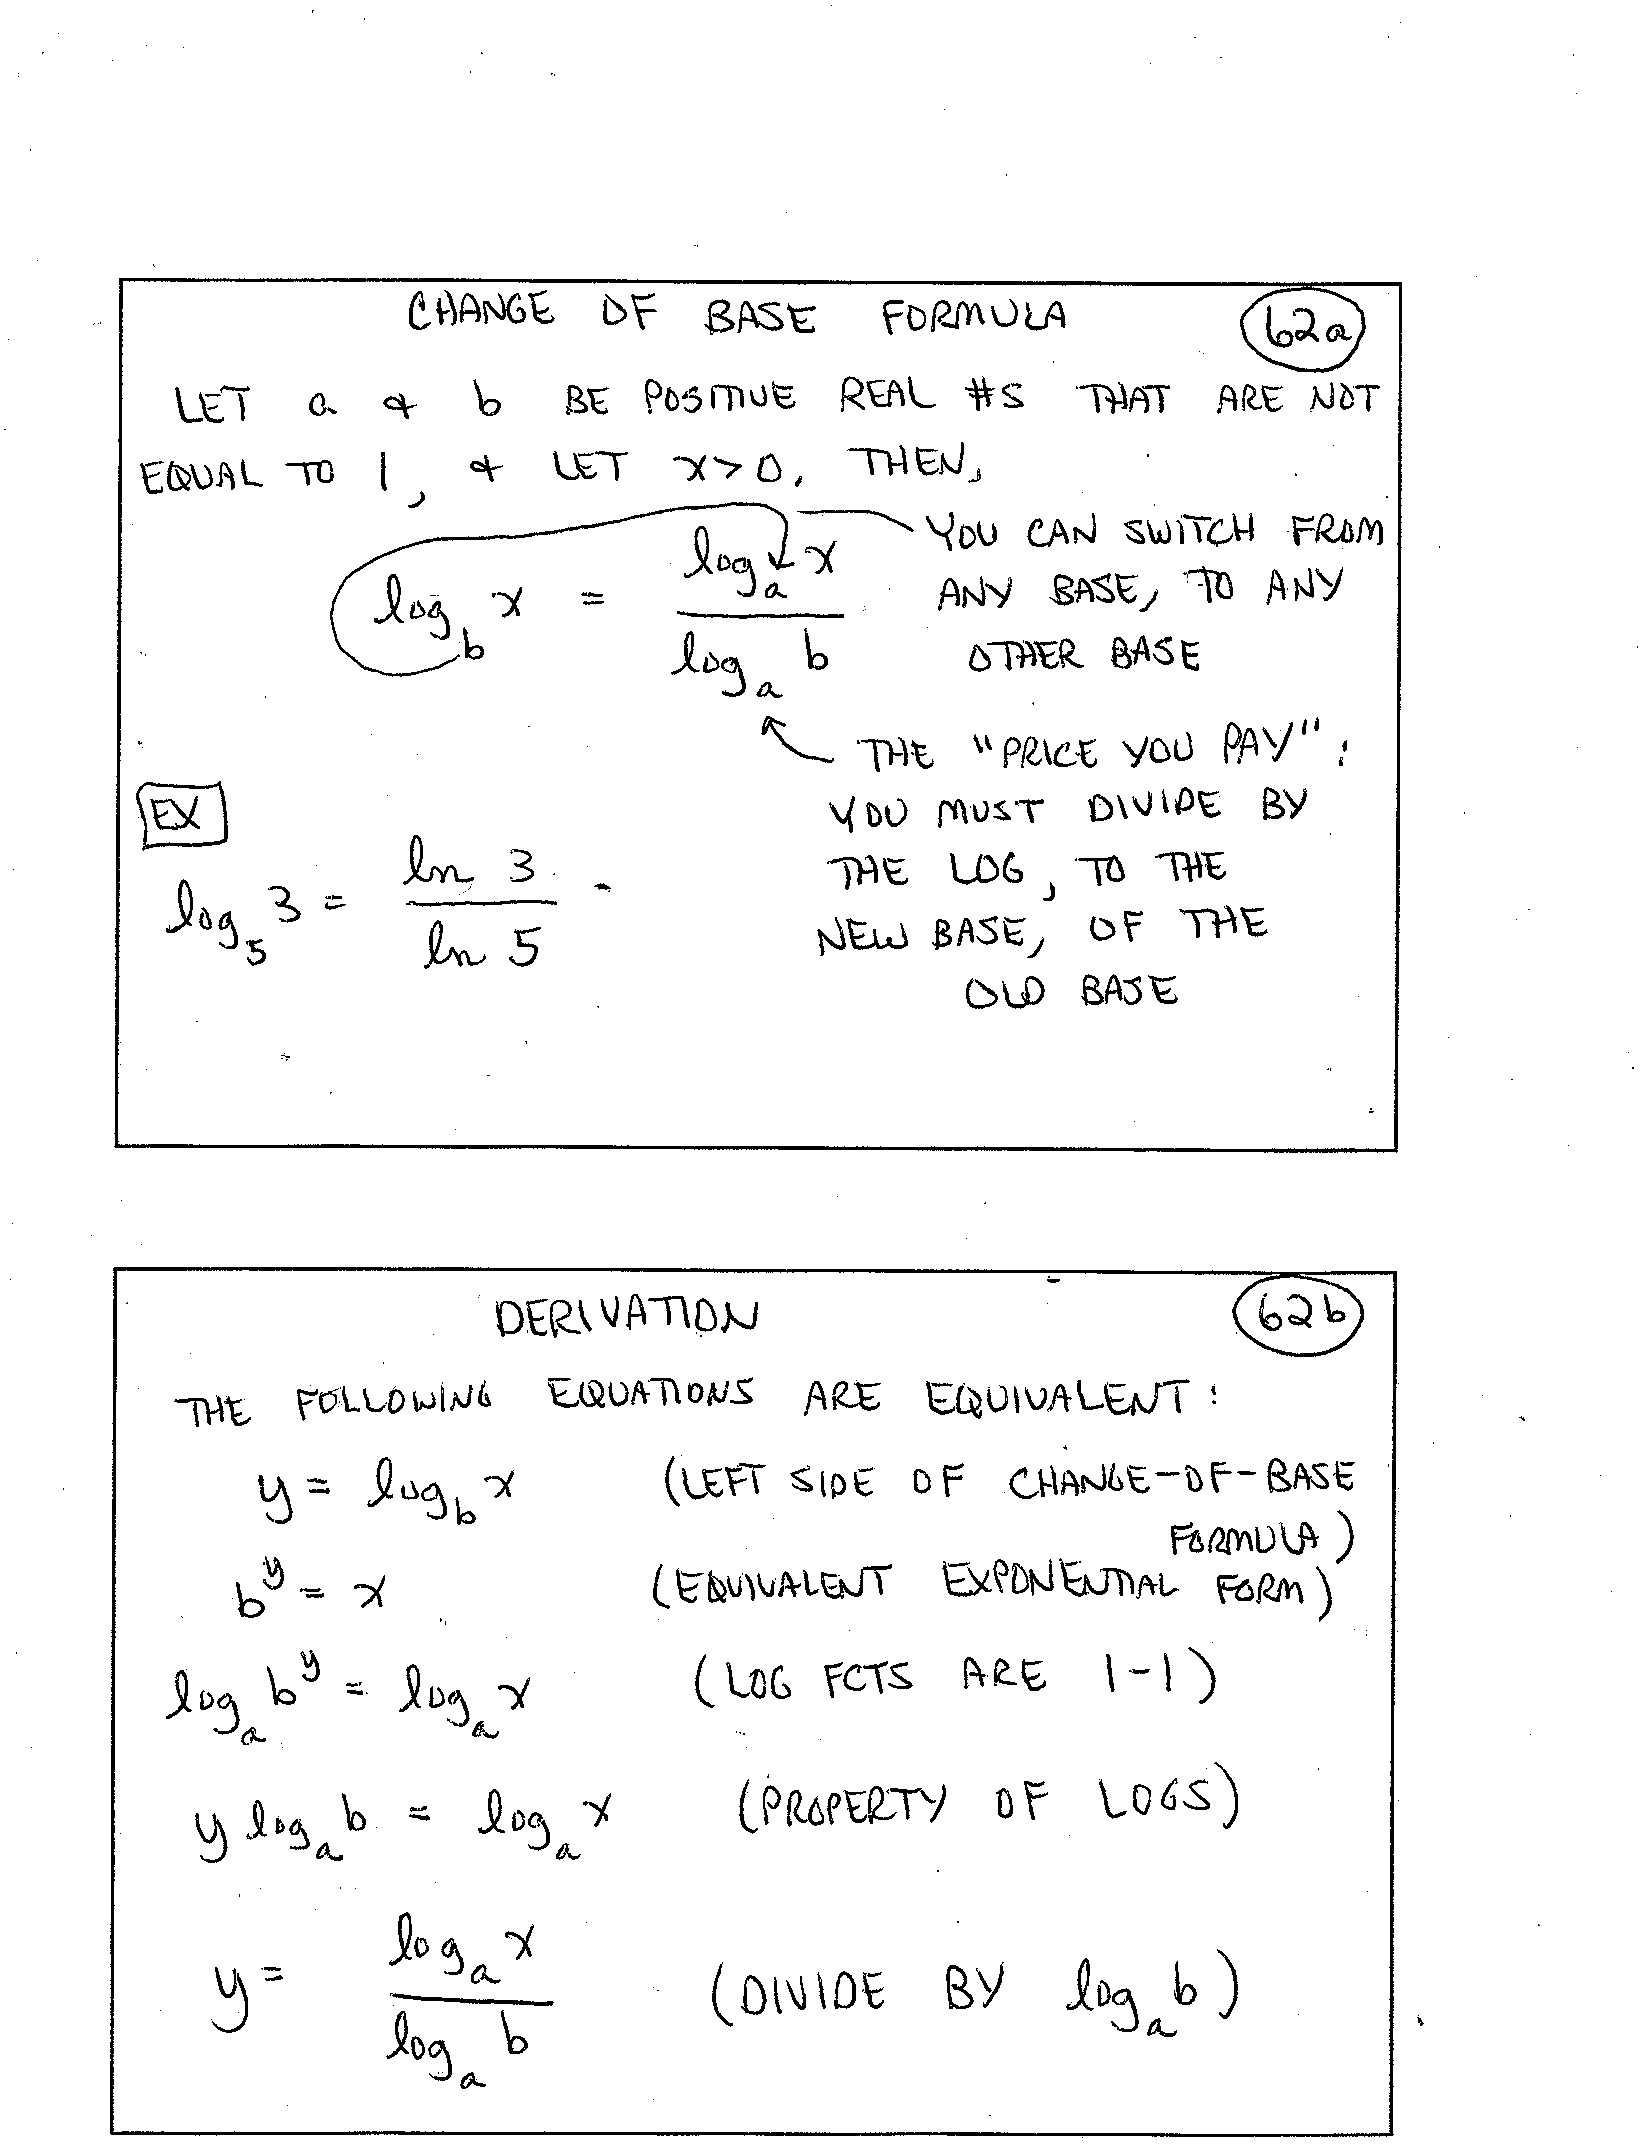 CHANGE OF BASE FORMULA 62a
LET a & b BE POSITIVE REAL #S THAT ARE NOT
EQUAL TO 1, & LET x>0, THEN,
log_b x = (log_a x)/(log_a b)
YOU CAN SWITCH FROM
ANY BASE, TO ANY
OTHER BASE
THE "PRICE YOU PAY":
YOU MUST DIVIDE BY
THE LOG, TO THE
NEW BASE, OF THE
OLD BASE
EX
log_5 3 = (ln 3)/(ln 5).
DERIVATION 62b
THE FOLLOWING EQUATIONS ARE EQUIVALENT:
y = log_b x (LEFT SIDE OF CHANGE-OF-BASE
FORMULA)
b^y = x (EQUIVALENT EXPONENTIAL FORM)
log_a b^y = log_a x (LOG FCTS ARE 1-1)
y log_a b = log_a x (PROPERTY OF LOGS)
y = (log_a x)/(log_a b) (DIVIDE BY log_a b)